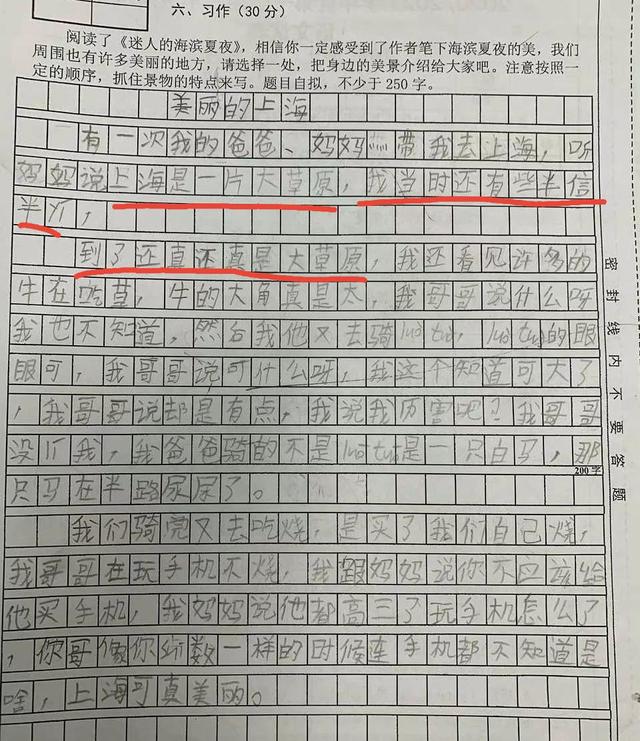 六、习作（30 分）
阅读了《迷人的海滨夏夜》，相信你一定感受到了作者笔下海滨夏夜的美，我们
周围也有许多美丽的地方，请选择一处，把身边的美景介绍给大家吧。注意按照一
定的顺序，抓住景物的特点来写。题目自拟，不少于 250 字。
美丽的上海
有一次我的爸爸、妈妈带我去上海，听
妈妈说上海是一片大草原，我当时还有些半信
半
到了还真还真是大草原，我还看见许多的
牛在吃草，牛的大角真是太，我哥哥说什么呀
我也不知道，然后我他又去骑luo tuo，luo tuo的眼
眼可，我哥哥说可什么呀，我这个知道可大了
，我哥哥说却是有点，我说我厉害吧？我哥哥
没我，我爸爸骑的不是luo tuo是一只白马，那
200 字
只马在半路尿尿了。
我们骑完又去吃烧，是买了我们自己烧，
我哥哥在玩手机不烧，我跟妈妈说你不应该给
他买手机，我妈妈说他都高三了玩手机怎么了
，你哥像你数一样的时候连手机都不知道是
啥，上海可真美丽。
密封线内不要答题